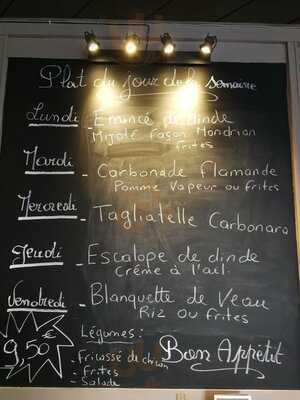 Plat du jour de la semaine
Lundi - Emincé de dinde
Mijoté façon Mondrian
frites
Mardi - Carbonade Flamande
Pomme Vapeur ou frites
Mercredi - Tagliatelle Carbonara
Jeudi - Escalope de dinde
Crème à l'ail
Vendredi - Blanquette de Veau
Riz ou frites
9,50€
Légumes:
- fricassé de chicon
- frites
- Salade
Bon Appétit